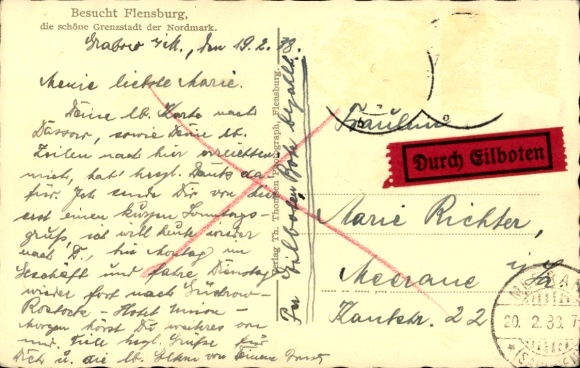 Besucht Flensburg,
die schöne Grenzstadt der Nordmark.
Grabow i/M., den 19.2.38.
Meine liebste Marie.
Deine lb. Karte nach
Dassow, sowie Deine lb.
Zeilen nach hier erreichten
mich, hab' herzl. Dank da-
für. Ich sende Dir von hier
erst einen kurzen Sonntags-
gruß, ich will heute wieder
nach D., bis Montag im
Geschäft und fahre Dienstag
wieder fort nach Güstrow-
Rostock - Hotel Union -
Morgen hörst Du weiteres von
mir. Viele herzl. Grüße für
Dich u. die lb. Eltern von Deinem
Verlag Th. Thomsen, Flensburg.
Per Eilboten, Bote bezahlt.
Fräulein
Durch Eilboten
Marie Richter,
Meerane i/Sa
Kantstr. 22
20. 2. 38. 7